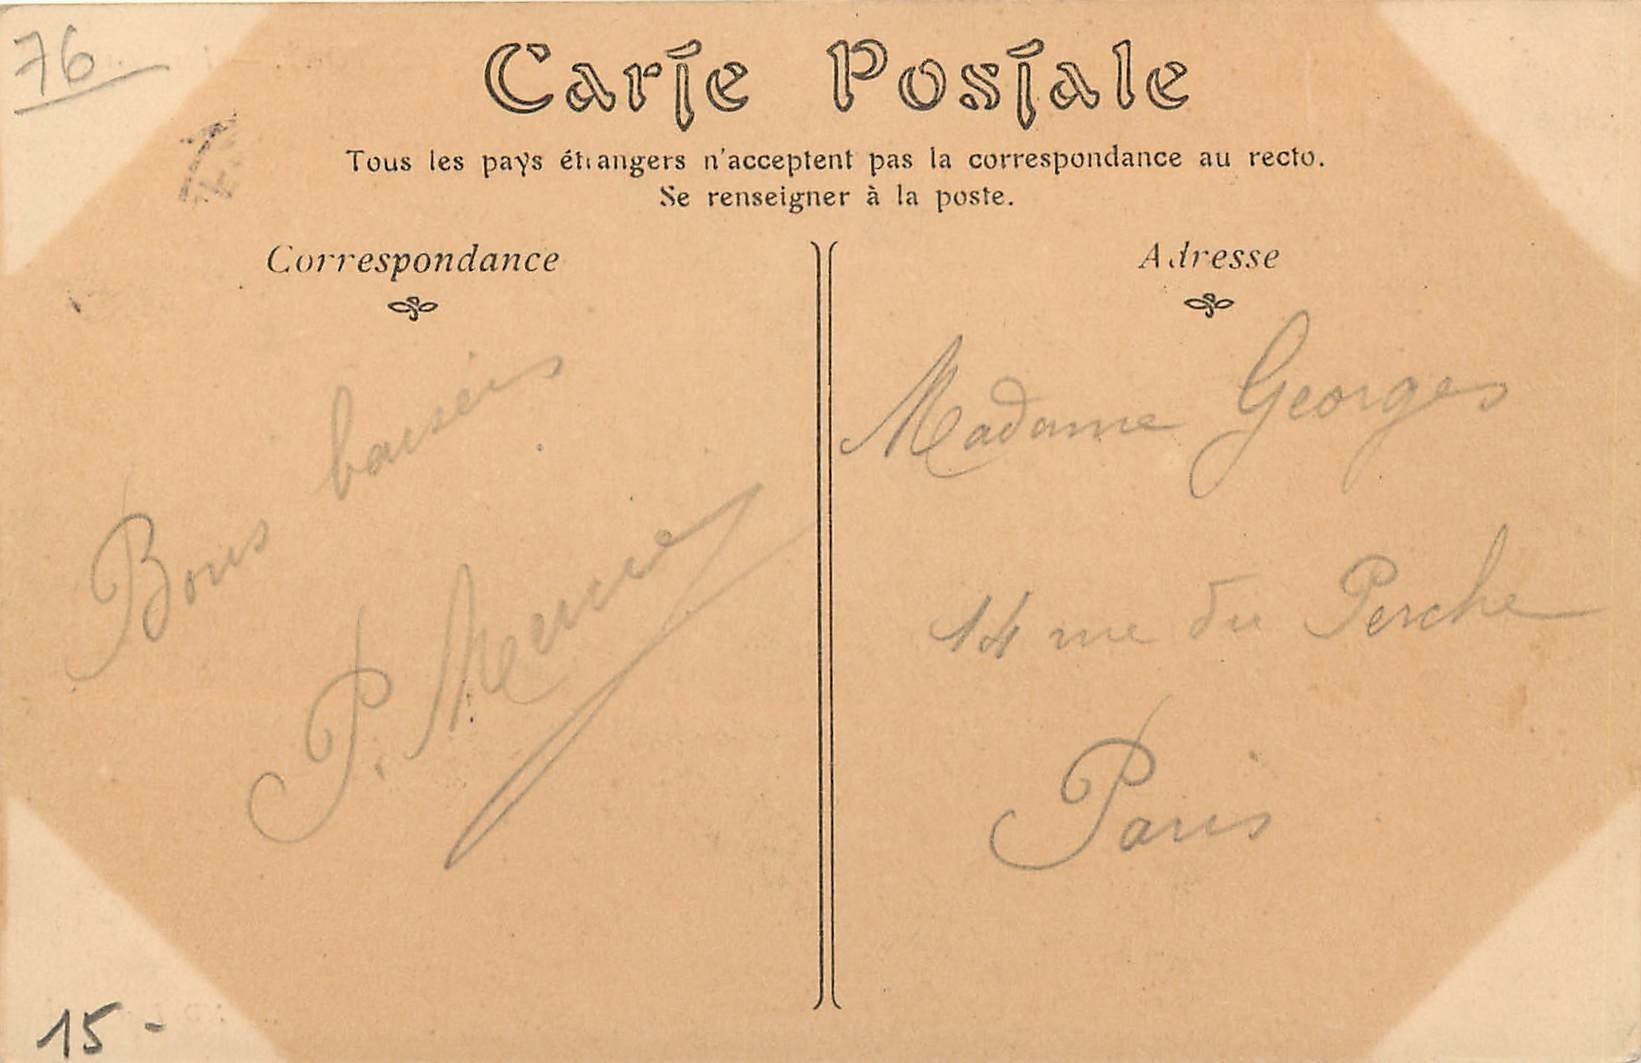 76
Carte Postale
Tous les pays étrangers n'acceptent pas la correspondance au recto.
Se renseigner à la poste.
Correspondance
Bons baisers
P.
Adresse
Madame Georges
14 rue du Perche
Paris
15 -